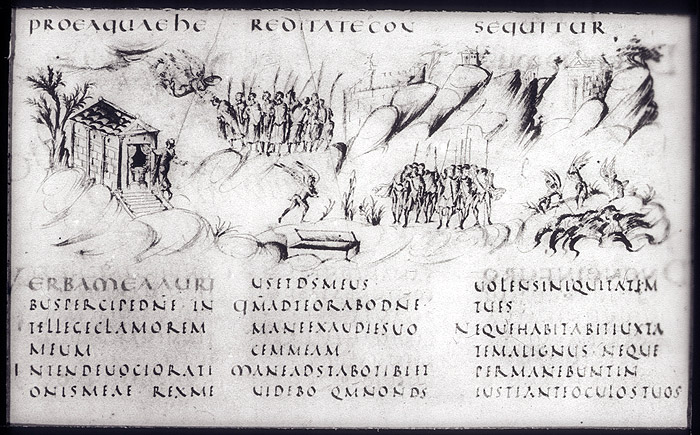 PROEAQUAEHE REDITATECON SEQUITUR
VERBAMEAAURI
BUSPERCIPEDNE IN
TELLEGECLAMOREM
MEUM
INTENDEUOCIORATI
ONISMEAE REXME
USETDSMEUS
QMADTEORABODNE
MANEEXAUDIESUO
CEMMEAM
MANEADSTABOTIBIET
UIDEBO QMNONDS
UOLENSINIQUITATEM
TUES
NEQUEHABITABITIUXTA
TEMALIGNUS NEQUE
PERMANEBUNTIN
IUSTIANTEOCULOSTUOS